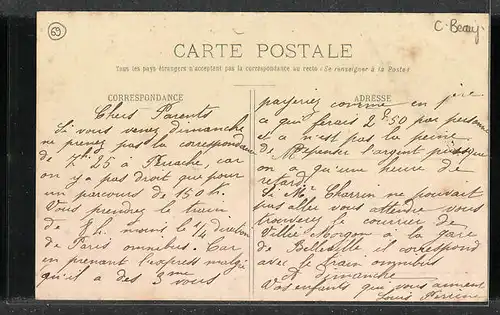 69
C. Beauj.
CARTE POSTALE
Tous les pays étrangers n'acceptent pas la correspondance au recto (Se renseigner à la Poste)
CORRESPONDANCE
Chers Parents
Si vous venez dimanche
ne prenez pas la correspondance
de 7h 25 à Perrache, car
on y a pas droit que pour
un parcours de 150 K.
Vous prendrez le train
de 8h moins le 1/4 direction
de Paris omnibus. Car
en prenant l'express malgré
qu'il a des 3me vous
ADRESSE
payeriez comme en 1ère
ça ferais 2f50 par personne
et ça n'est pas la peine
de l'argent puisque
on a qu'une heure de
retard.
Si Mr Charrin ne pouvait
pas aller vous attendre vous
trouverez le courrier de
Villié-Morgon à la gare
de Belleville il correspond
avec le train omnibus
dimanche
Vos enfants que vous aiment
Louis